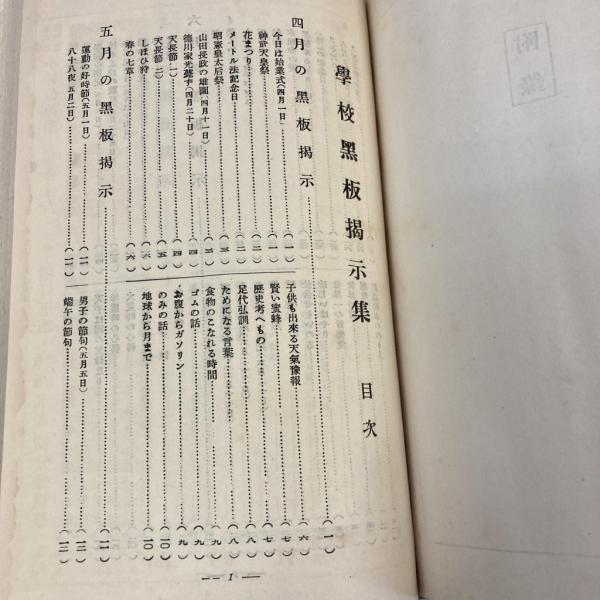 附錄
學校黑板揭示集 目次
四月の黑板揭示……(一)
今日は始業式(四月一日)……(一)
神武天皇祭……(一)
花まつり……(二)
メートル法記念日……(二)
昭憲皇太后祭……(三)
山田長政の雄圖(四月十一日)……(三)
德川家光薨ず(四月二十日)……(四)
天長節(一)……(四)
天長節(二)……(五)
しほひ狩……(六)
春の七草……(六)
子供も出來る天氣豫報……(六)
賢い蜜蜂……(七)
歷史考へもの……(七)
足代弘訓……(八)
ためになる言葉……(八)
食物のこなれる時間……(九)
ゴムの話……(九)
お腹からガソリン……(九)
のみの話……(一〇)
地球から月まで……(一〇)
五月の黑板揭示……(一一)
運動の好時節(五月一日)……(一一)
八十八夜(五月二日)……(一一)
男子の節句(五月五日)……(一二)
端午の節句……(一三)
— 1 —